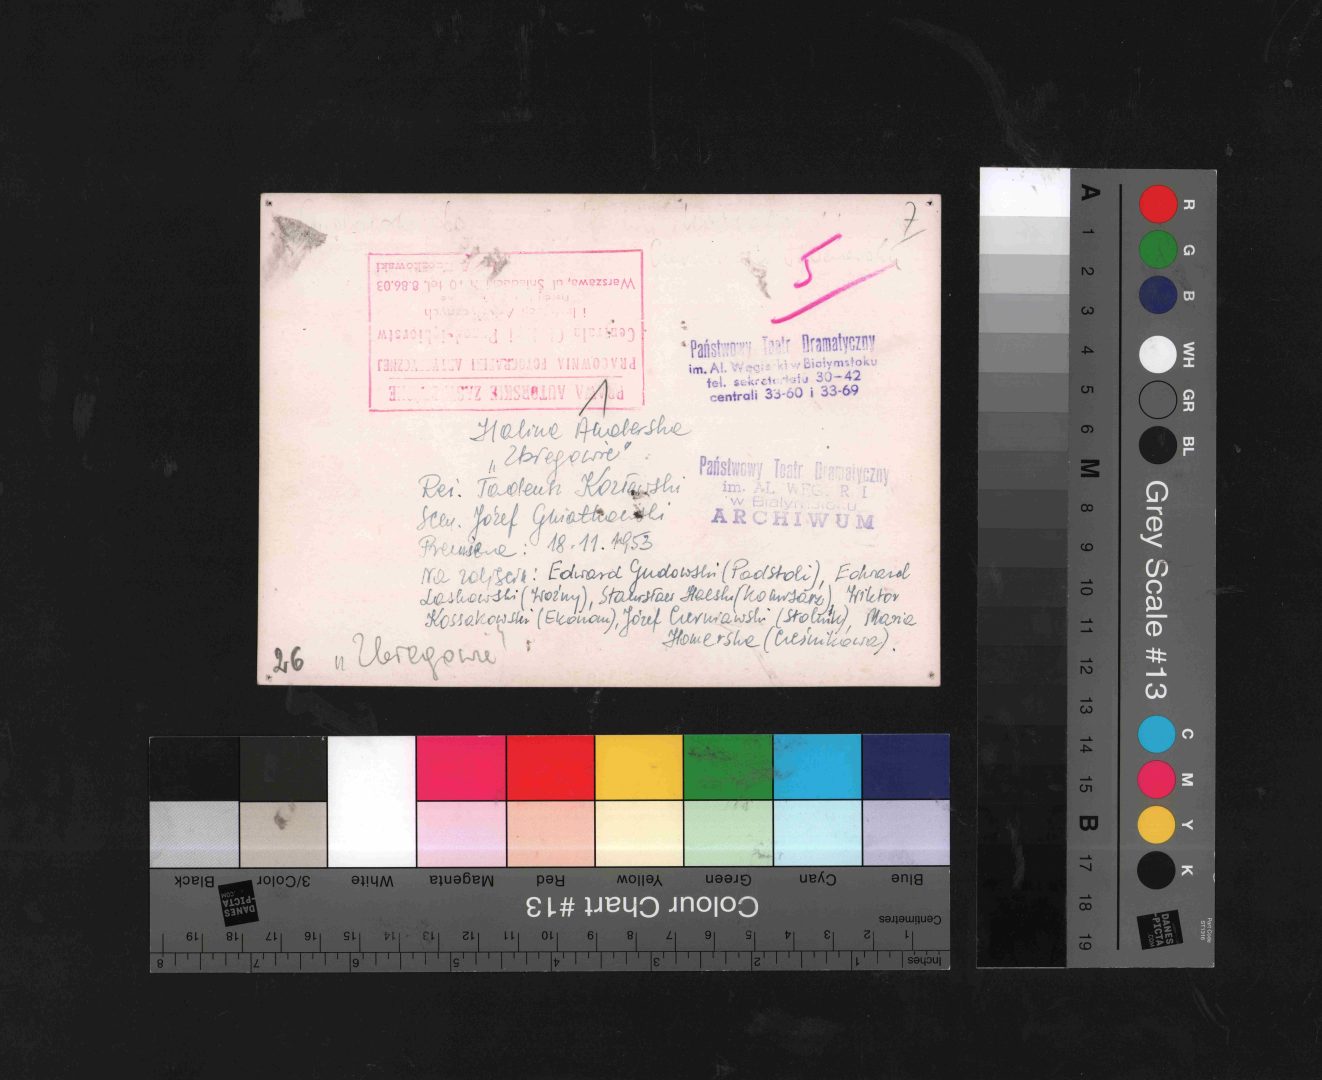 7
5
PRAWA AUTORSKIE
PRACOWNIA FOTOGRAFII ARTYSTYCZNEJ
Centrala
i
Warszawa, ul Śniadeckich 10 tel. 8.86.03
Państwowy Teatr Dramatyczny
im. Al. Węgierki w Białymstoku
tel. sekretariatu 30-42
centrali 33-60 i 33-69
Halina Auderska
„Zbiegowie"
Reż. Tadeusz Kozłowski
Scen. Józef Gniatkowski
Premiera: 18.11.1953
Na zdjęciu: Edward Gudowski (Podstoli), Edward
Laskowski (Woźny), Stanisław (Komisarz), Wiktor
Kossakowski (Ekonom), Józef Czerniawski (Stolnik), Maria
Homerska (Cześnikowa).
Państwowy Teatr Dramatyczny
im. AL. WĘGIERKI
w Białymstoku
ARCHIWUM
26 „Zbiegowie"
Black 3/Color White Magenta Red Yellow Green Cyan Blue
Colour Chart #13
DANES
-PICTA
.COM
Centimetres
1 2 3 4 5 6 7 8 9 10 11 12 13 14 15 16 17 18 19
Inches
1 2 3 4 5 6 7 8
A 1 2 3 4 5 6 M 8 9 10 11 12 13 14 15 B 17 18 19
R G B WH GR BL
Grey Scale #13
C M Y K
DANES
-PICTA
.COM